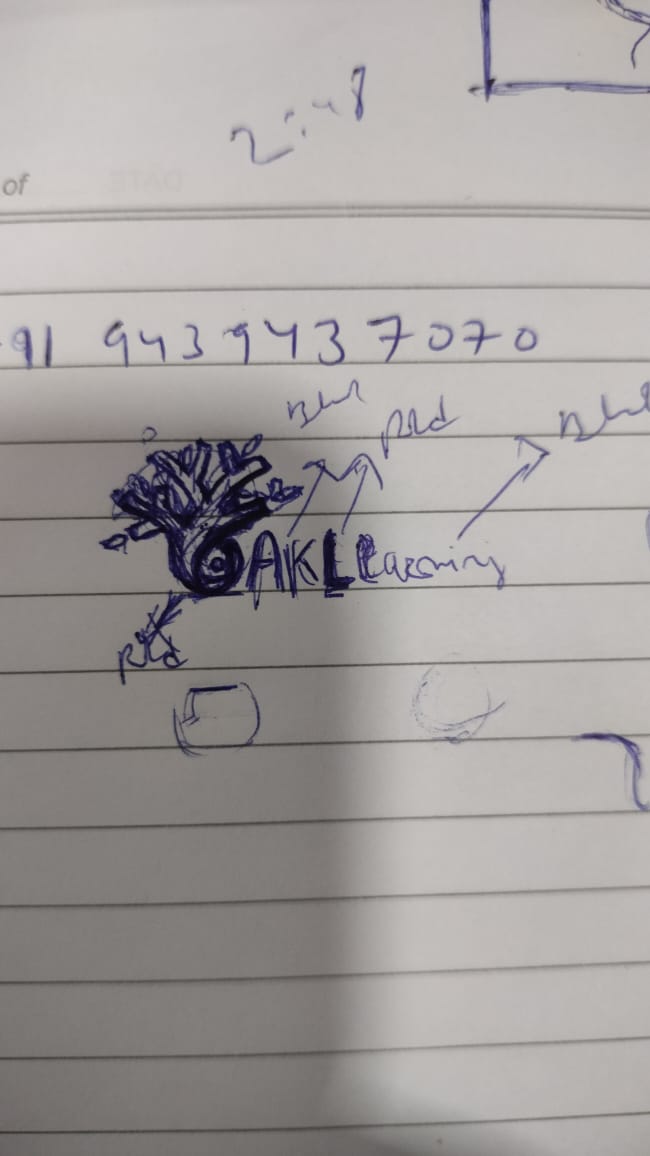 2:48
of
DATE
+91 9439437070
Blue Red Blue
OAKLLearning
Red